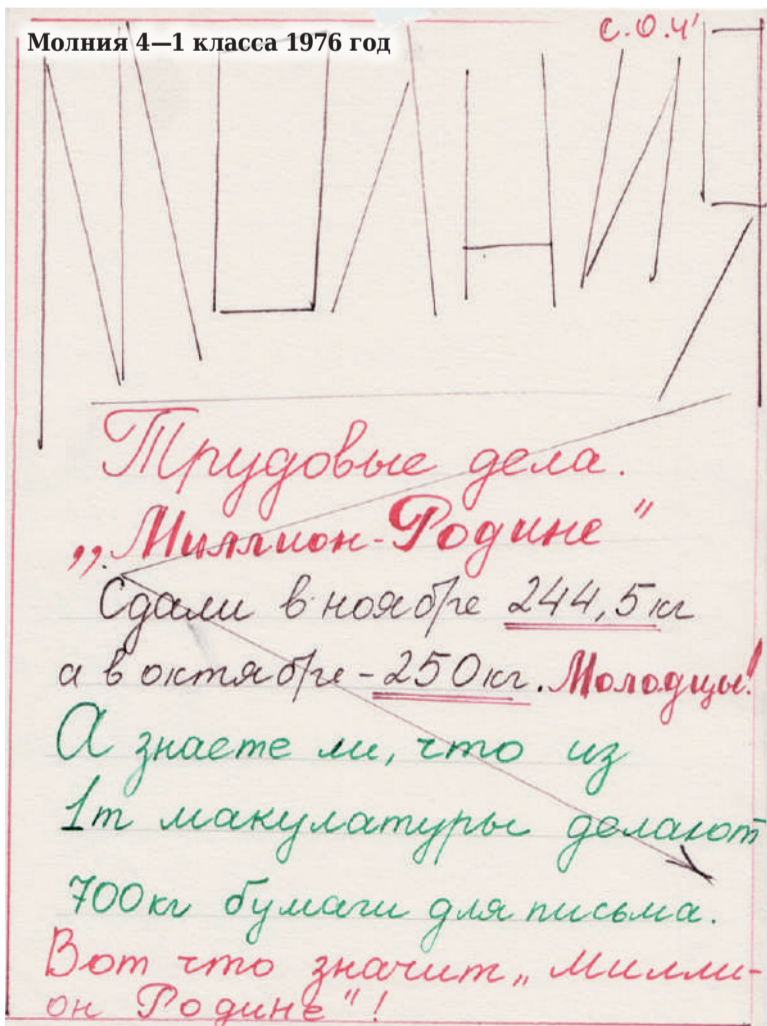 Молния 4—1 класса 1976 год
С.О.Ч'
МОЛНИЯ
Трудовые дела.
„Миллион-Родине"
Сдали в ноябре 244,5 кг
а в октябре - 250 кг. Молодцы!
А знаете ли, что из
1т макулатуры делают
700 кг бумаги для письма.
Вот что значит „Милли-
он Родине"!